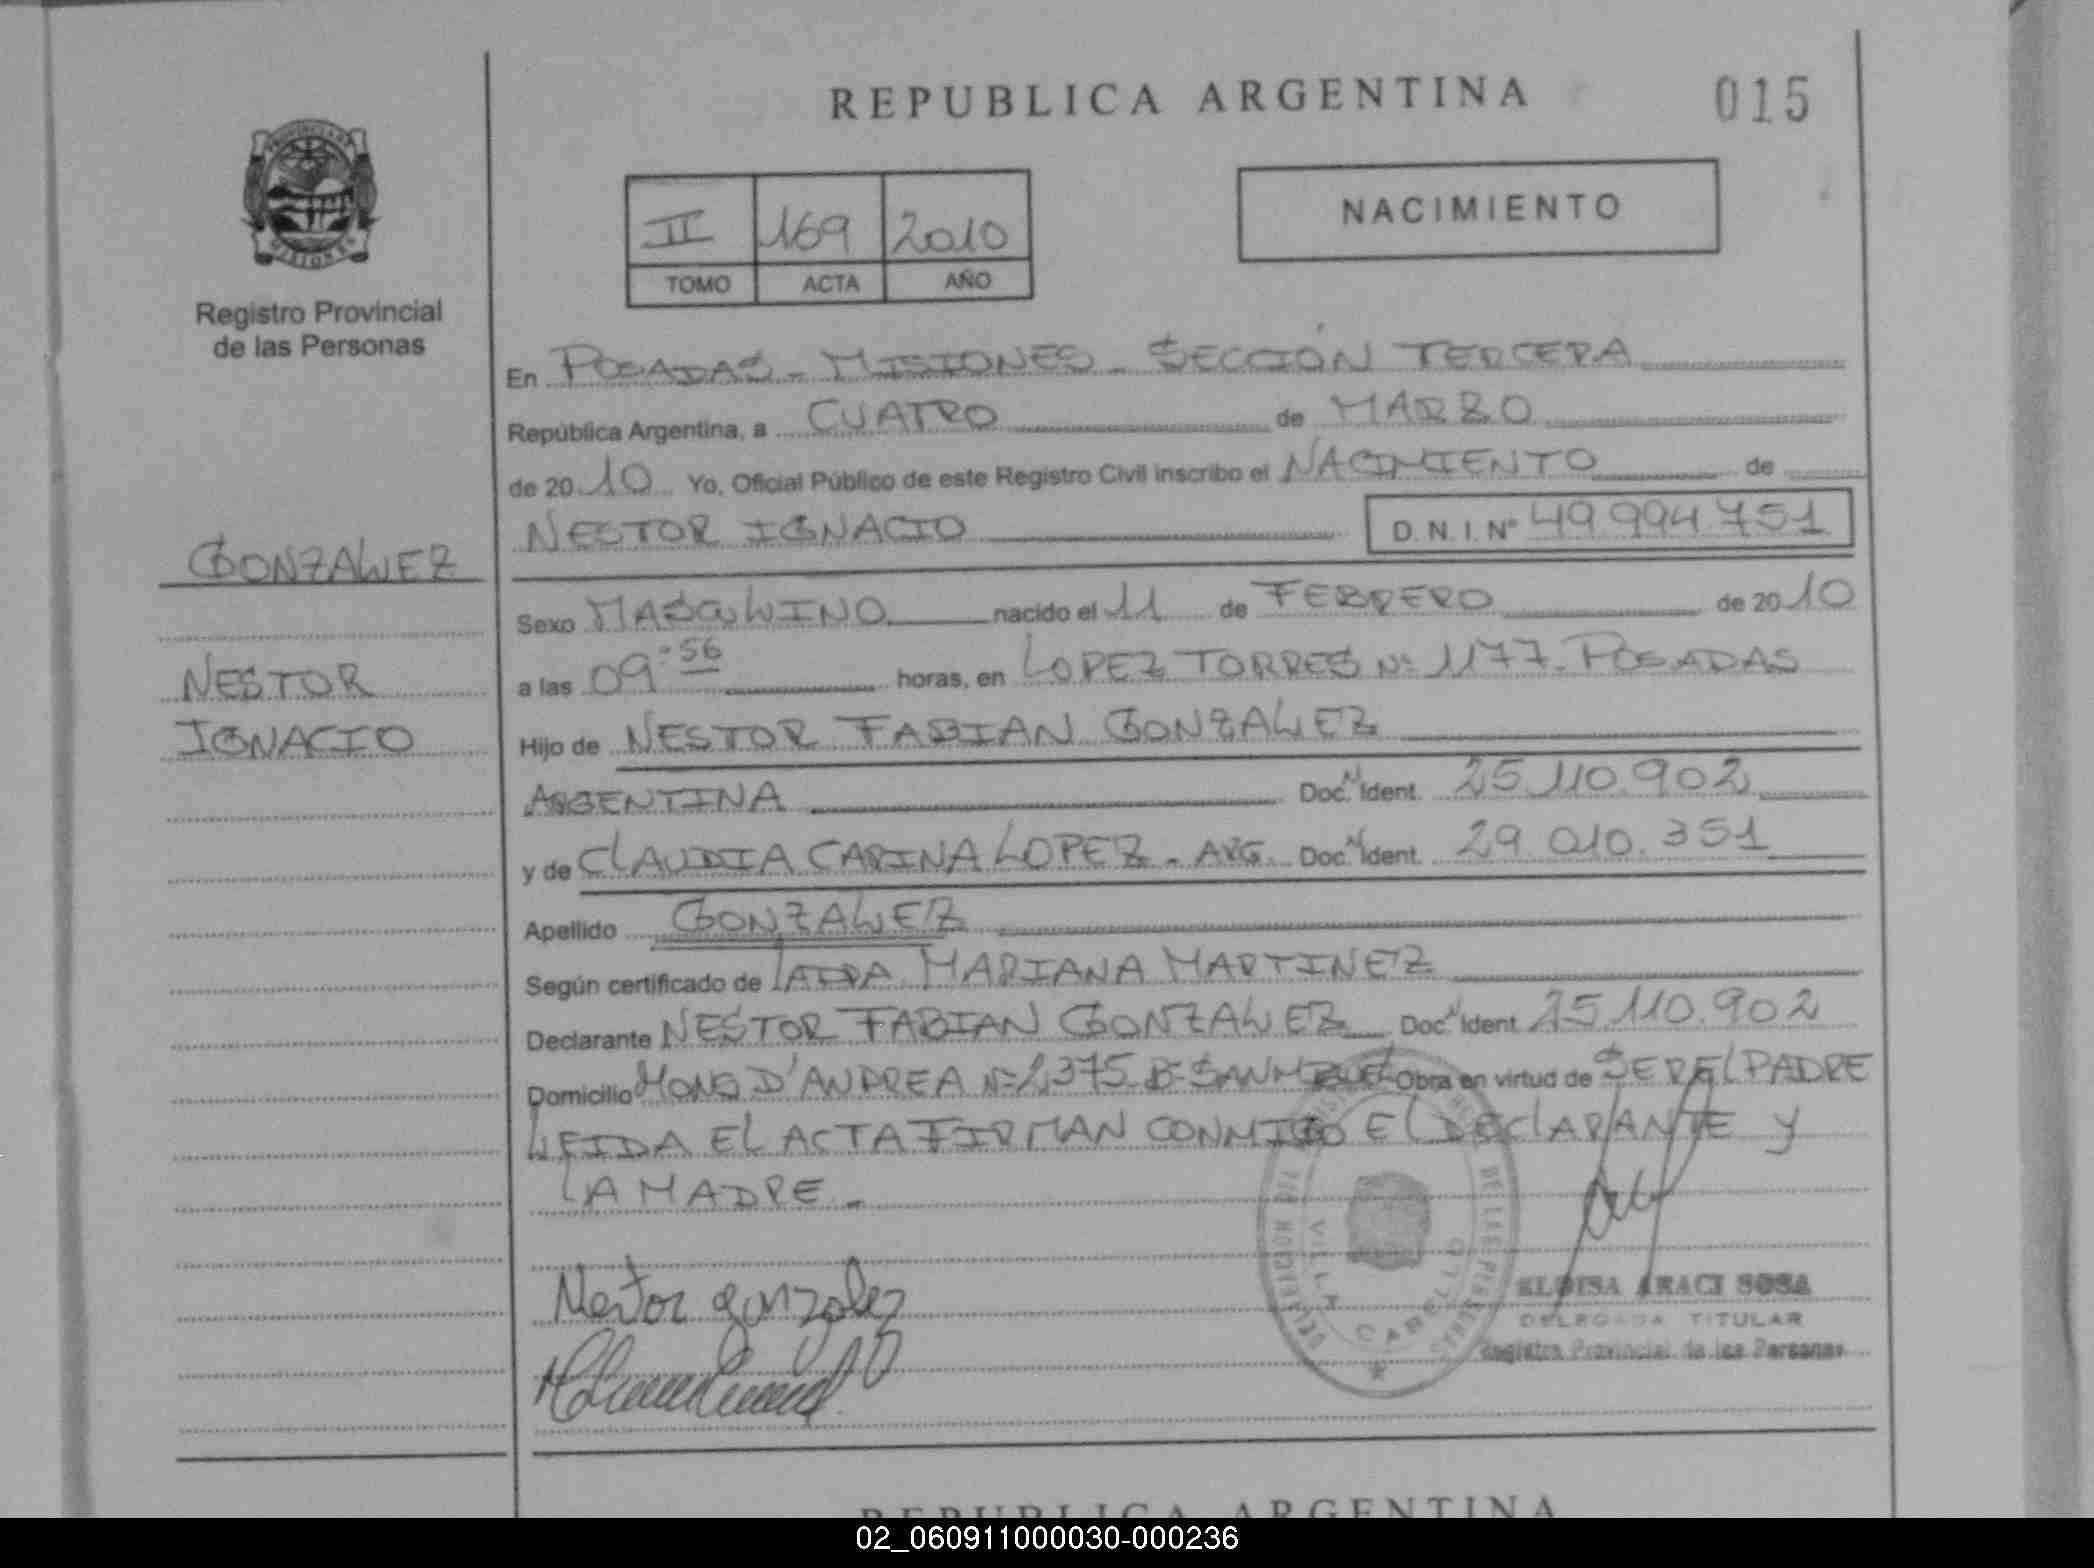 REPUBLICA ARGENTINA
015
PROVINCIA DE
MISIONES
Registro Provincial
de las Personas
II 169 2010
TOMO ACTA AÑO
NACIMIENTO
En POSADAS - MISIONES - SECCIÓN TERCERA
República Argentina, a CUATRO de MARZO
de 2010 Yo, Oficial Público de este Registro Civil inscribo el NACIMIENTO de
NESTOR IGNACIO D.N.I. Nº 49 994 751
GONZALEZ
NESTOR
IGNACIO
Sexo MASCULINO nacido el 11 de FEBRERO de 2010
a las 09:56 horas, en LOPEZ TORRES Nº 1177 - POSADAS
Hijo de NESTOR FABIAN GONZALEZ
ARGENTINA Doc. N Ident. 25.110.902
y de CLAUDIA CARINA LOPEZ - ARG. Doc. N Ident. 29.010.351
Apellido GONZALEZ
Según certificado de MARIANA MARTINEZ
Declarante NESTOR FABIAN GONZALEZ Doc. N Ident. 25.110.902
Domicilio MONS D'ANDREA Nº 2375 Bº SAN MIGUEL Obra en virtud de SER EL PADRE
LEIDA EL ACTA FIRMAN CONMIGO EL DECLARANTE Y
LA MADRE -
Nestor gonzalez
VILLA CABELLO
ELOISA ARACI SOSA
DELEGADA TITULAR
Registro Provincial de las Personas
REPUBLICA ARGENTINA
02_060911000030-000236